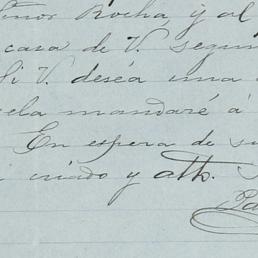 Rocha, y al
casa de V. segun
Si V. deséa una
mandaré á
En espera de su
criado y atto.